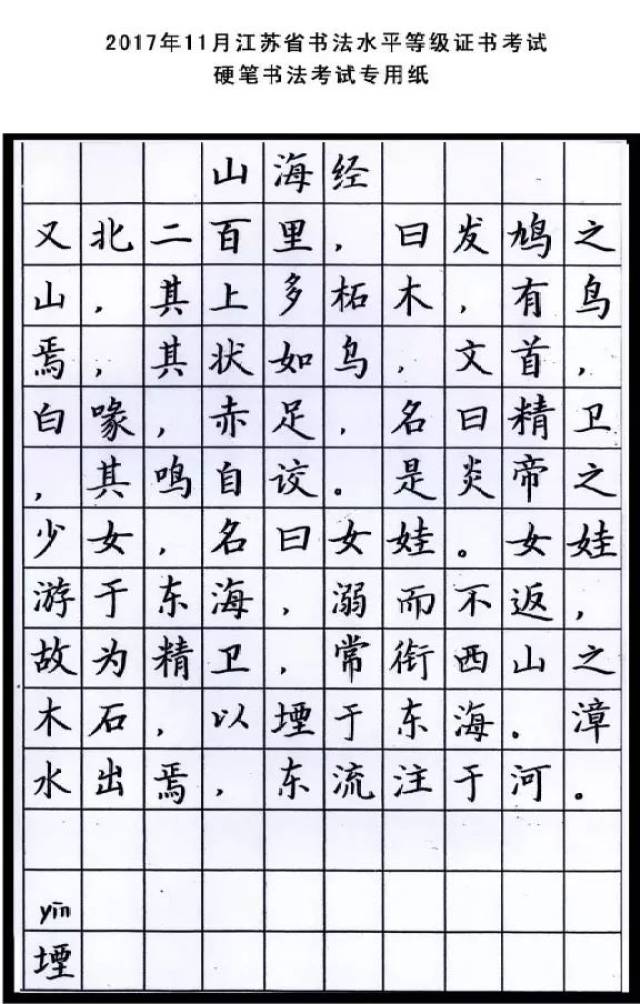 2017年11月江苏省书法水平等级证书考试
硬笔书法考试专用纸
山海经
又北二百里，曰发鸠之
山，其上多柘木，有鸟
焉，其状如乌，文首，
白喙，赤足，名曰精卫
，其鸣自詨。是炎帝之
少女，名曰女娃。女娃
游于东海，溺而不返，
故为精卫，常衔西山之
木石，以堙于东海。漳
水出焉，东流注于河。
yīn
堙